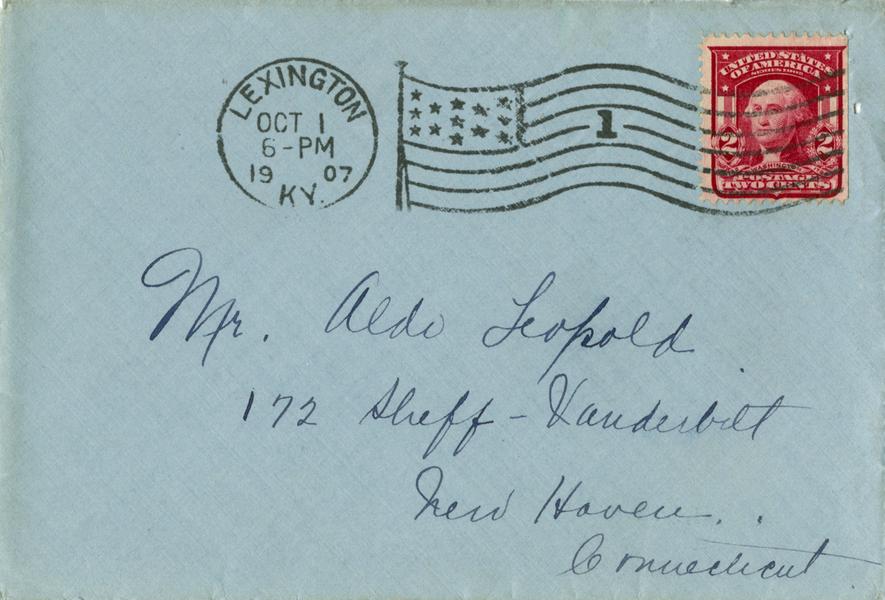 LEXINGTON
OCT 1
6-PM
19 07
KY.
1
UNITED STATES
OF AMERICA
SERIES 1902
2 2
WASHINGTON
POSTAGE
TWO CENTS
Mr. Aldo Leopold
172 Sheff-Vanderbilt
New Haven..
Connecticut